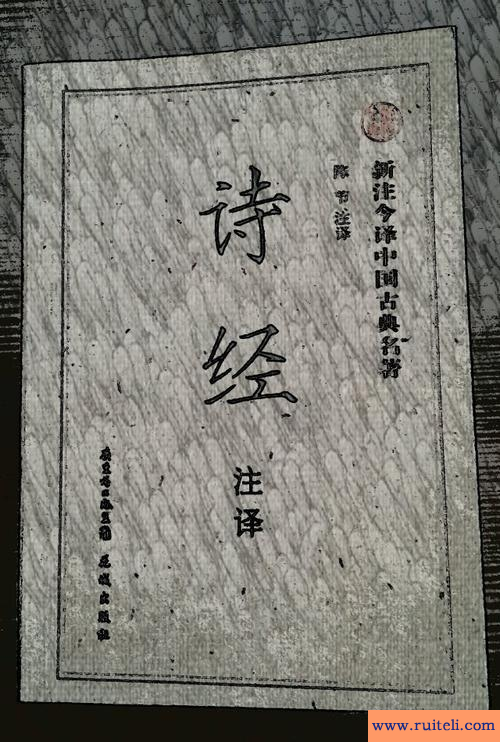 新注今译中国古典名著
陈节注译
诗经
注译
花城出版社
www.ruiteli.com